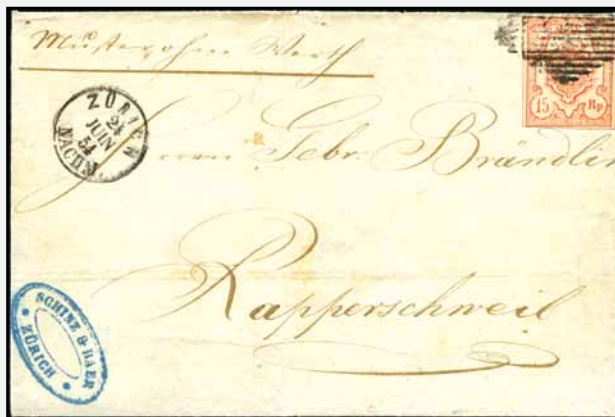 Muster ohne Werth
15 Rp
ZÜRICH
24
JUIN
54
NACHM.
Herrn Gebr. Brändlin
Rapperschweil
SCHINZ & BAER
ZÜRICH